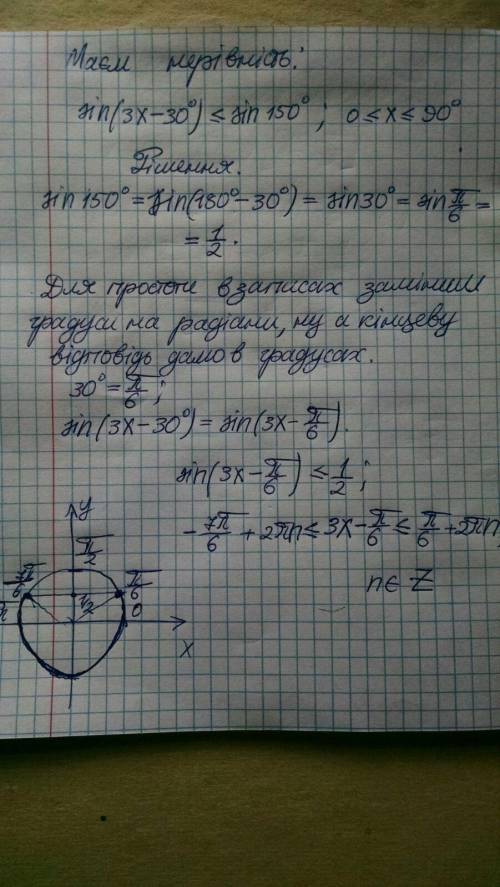 Маєм нерівність:
sin(3x-30°) ≤ sin 150°; 0≤x≤90°
Рішення.
sin 150° = sin(180°-30°) = sin30° = sin π/6 =
= 1/2.
Для простоти в записах замінили
градуси на радіани, ну а кінцеву
відповідь дамо в градусах.
30° = π/6;
sin(3x-30°) = sin(3x-π/6).
sin(3x-π/6) ≤ 1/2;
-7π/6 + 2πn ≤ 3x-π/6 ≤ π/6 + 2πn
n∈Z
y
π/2
-7π/6 1/2 π/6
0
x